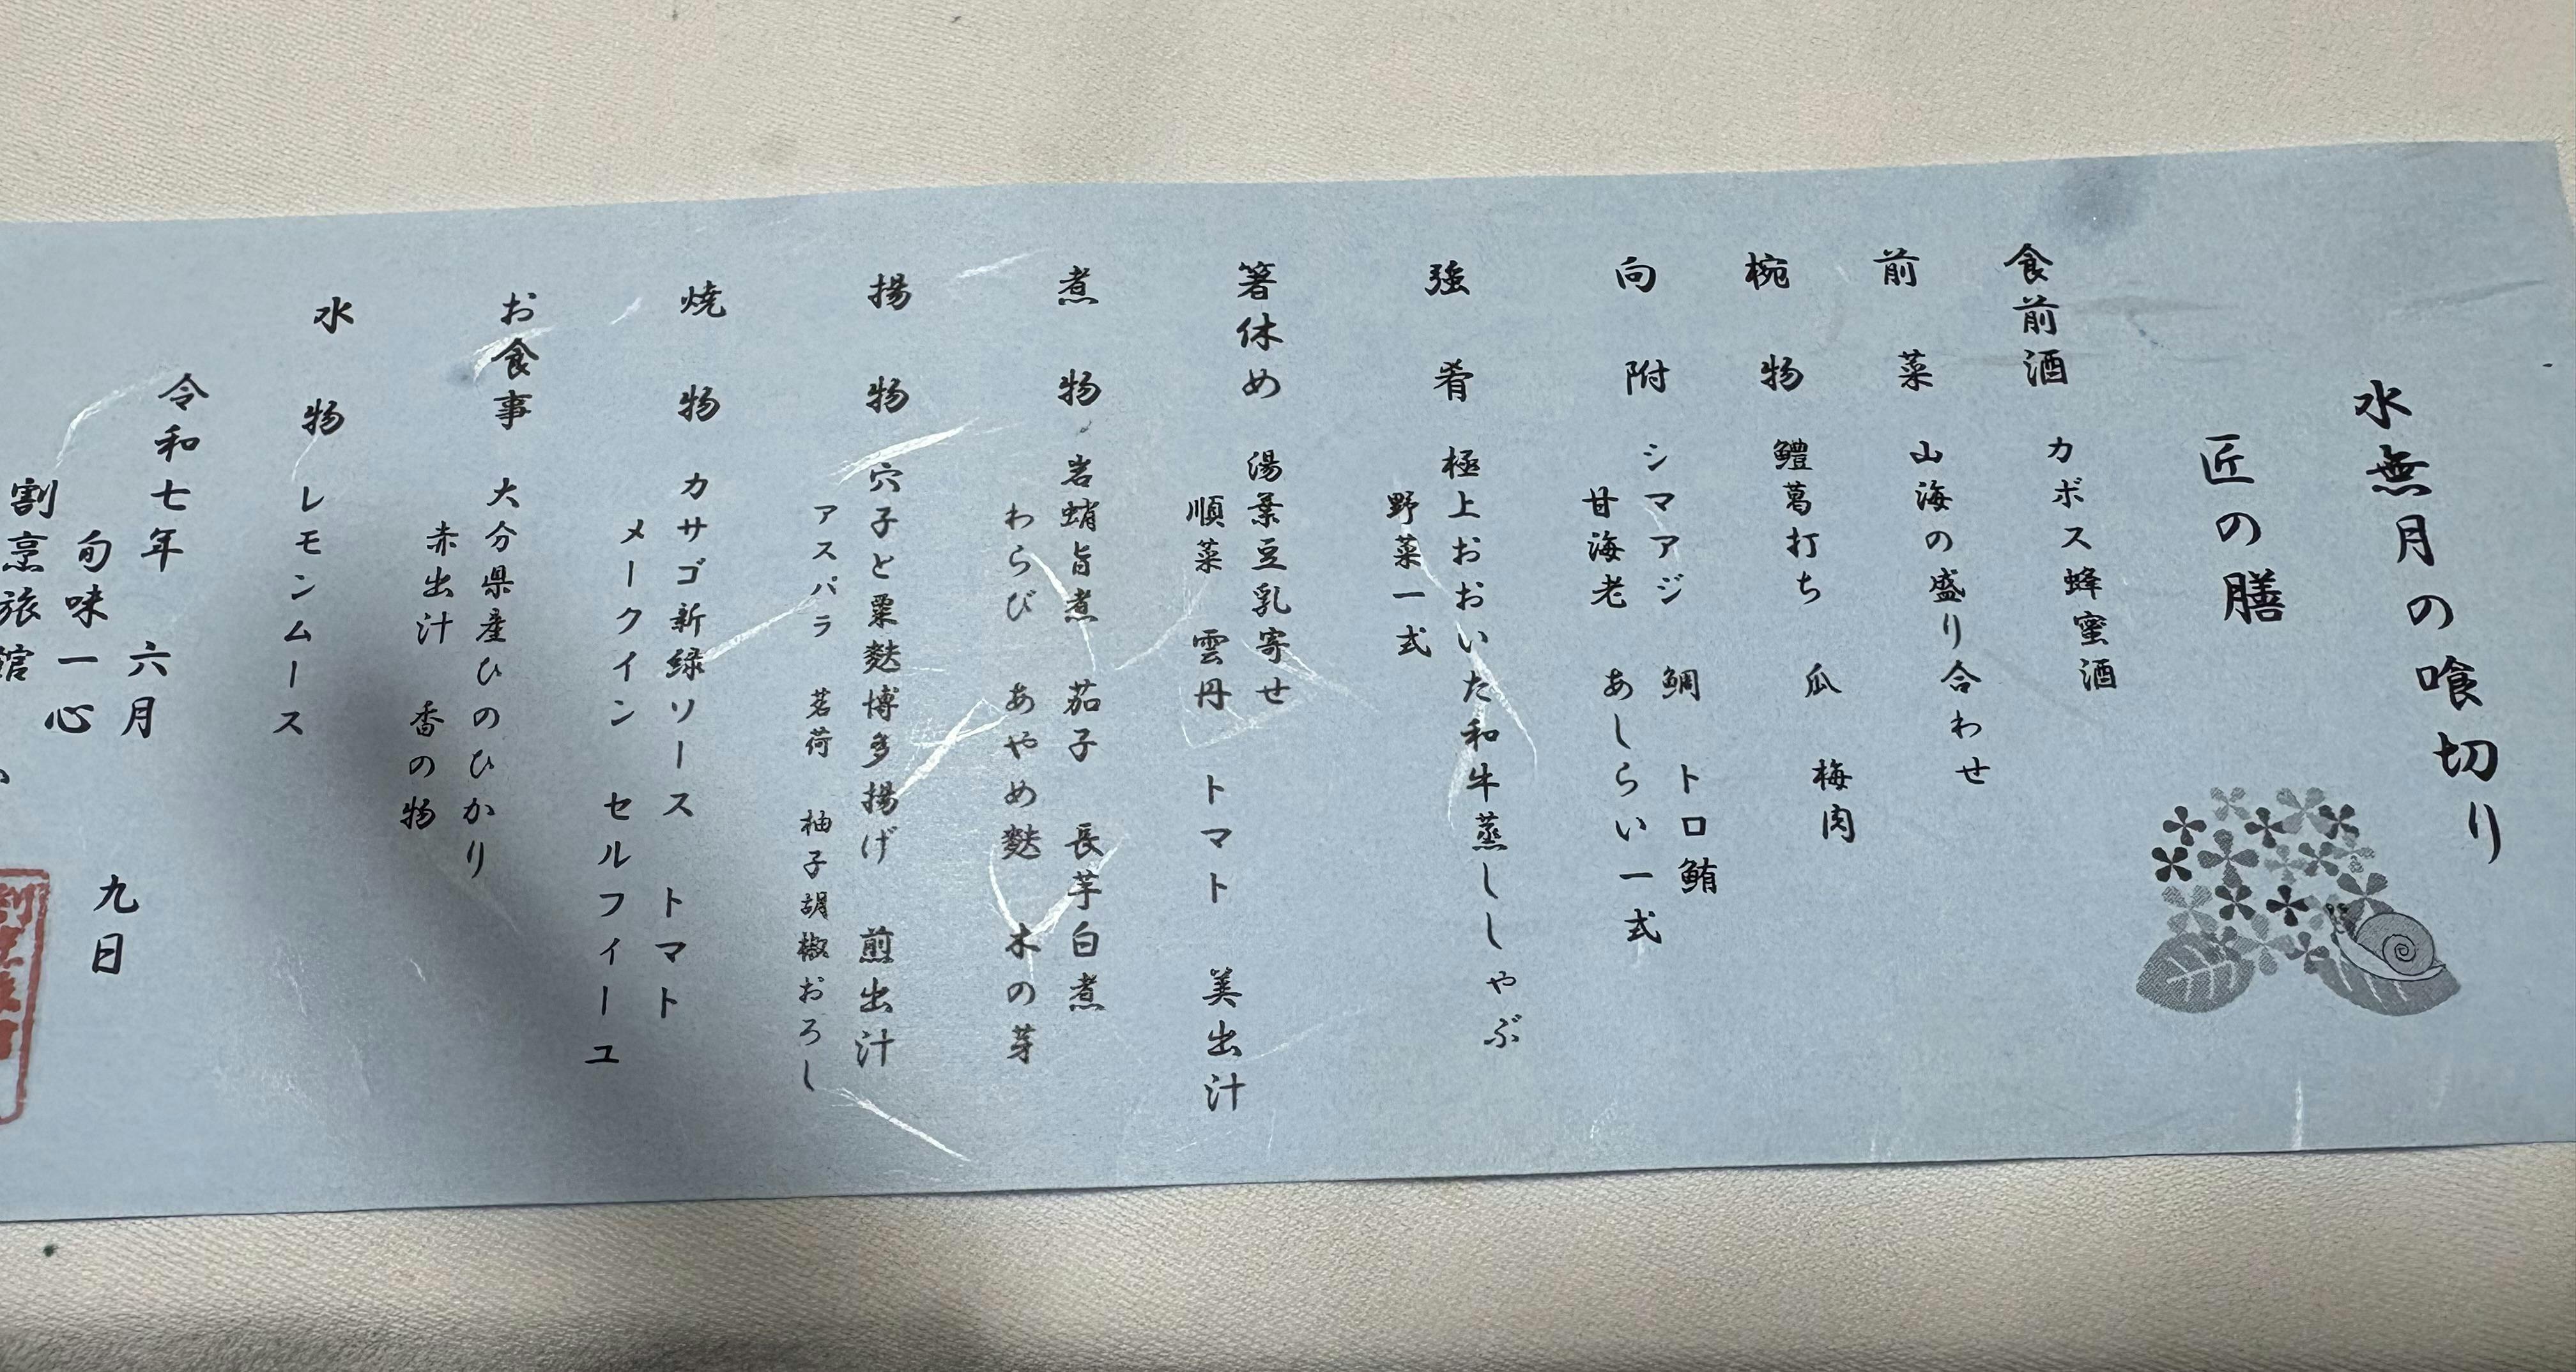 水無月の喰切り
匠の膳
食前酒 カボス蜂蜜酒
前菜 山海の盛り合わせ
椀物 鱧葛打ち 瓜 梅肉
向附 シマアジ 鯛 トロ鮪
甘海老 あしらい一式
強肴 極上おおいた和牛蒸ししゃぶ
野菜一式
箸休め 湯葉豆乳寄せ
順菜 雲丹 トマト 美出汁
煮物 岩蛸旨煮 茄子 長芋白煮
わらび あやめ麩 木の芽
揚物 穴子と粟麩博多揚げ 煎出汁
アスパラ 茗荷 柚子胡椒おろし
焼物 カサゴ新緑ソース トマト
メークイン セルフィーユ
お食事 大分県産ひのひかり
赤出汁 香の物
水物 レモンムース
令和七年 六月 九日
旬味一心
割烹旅館